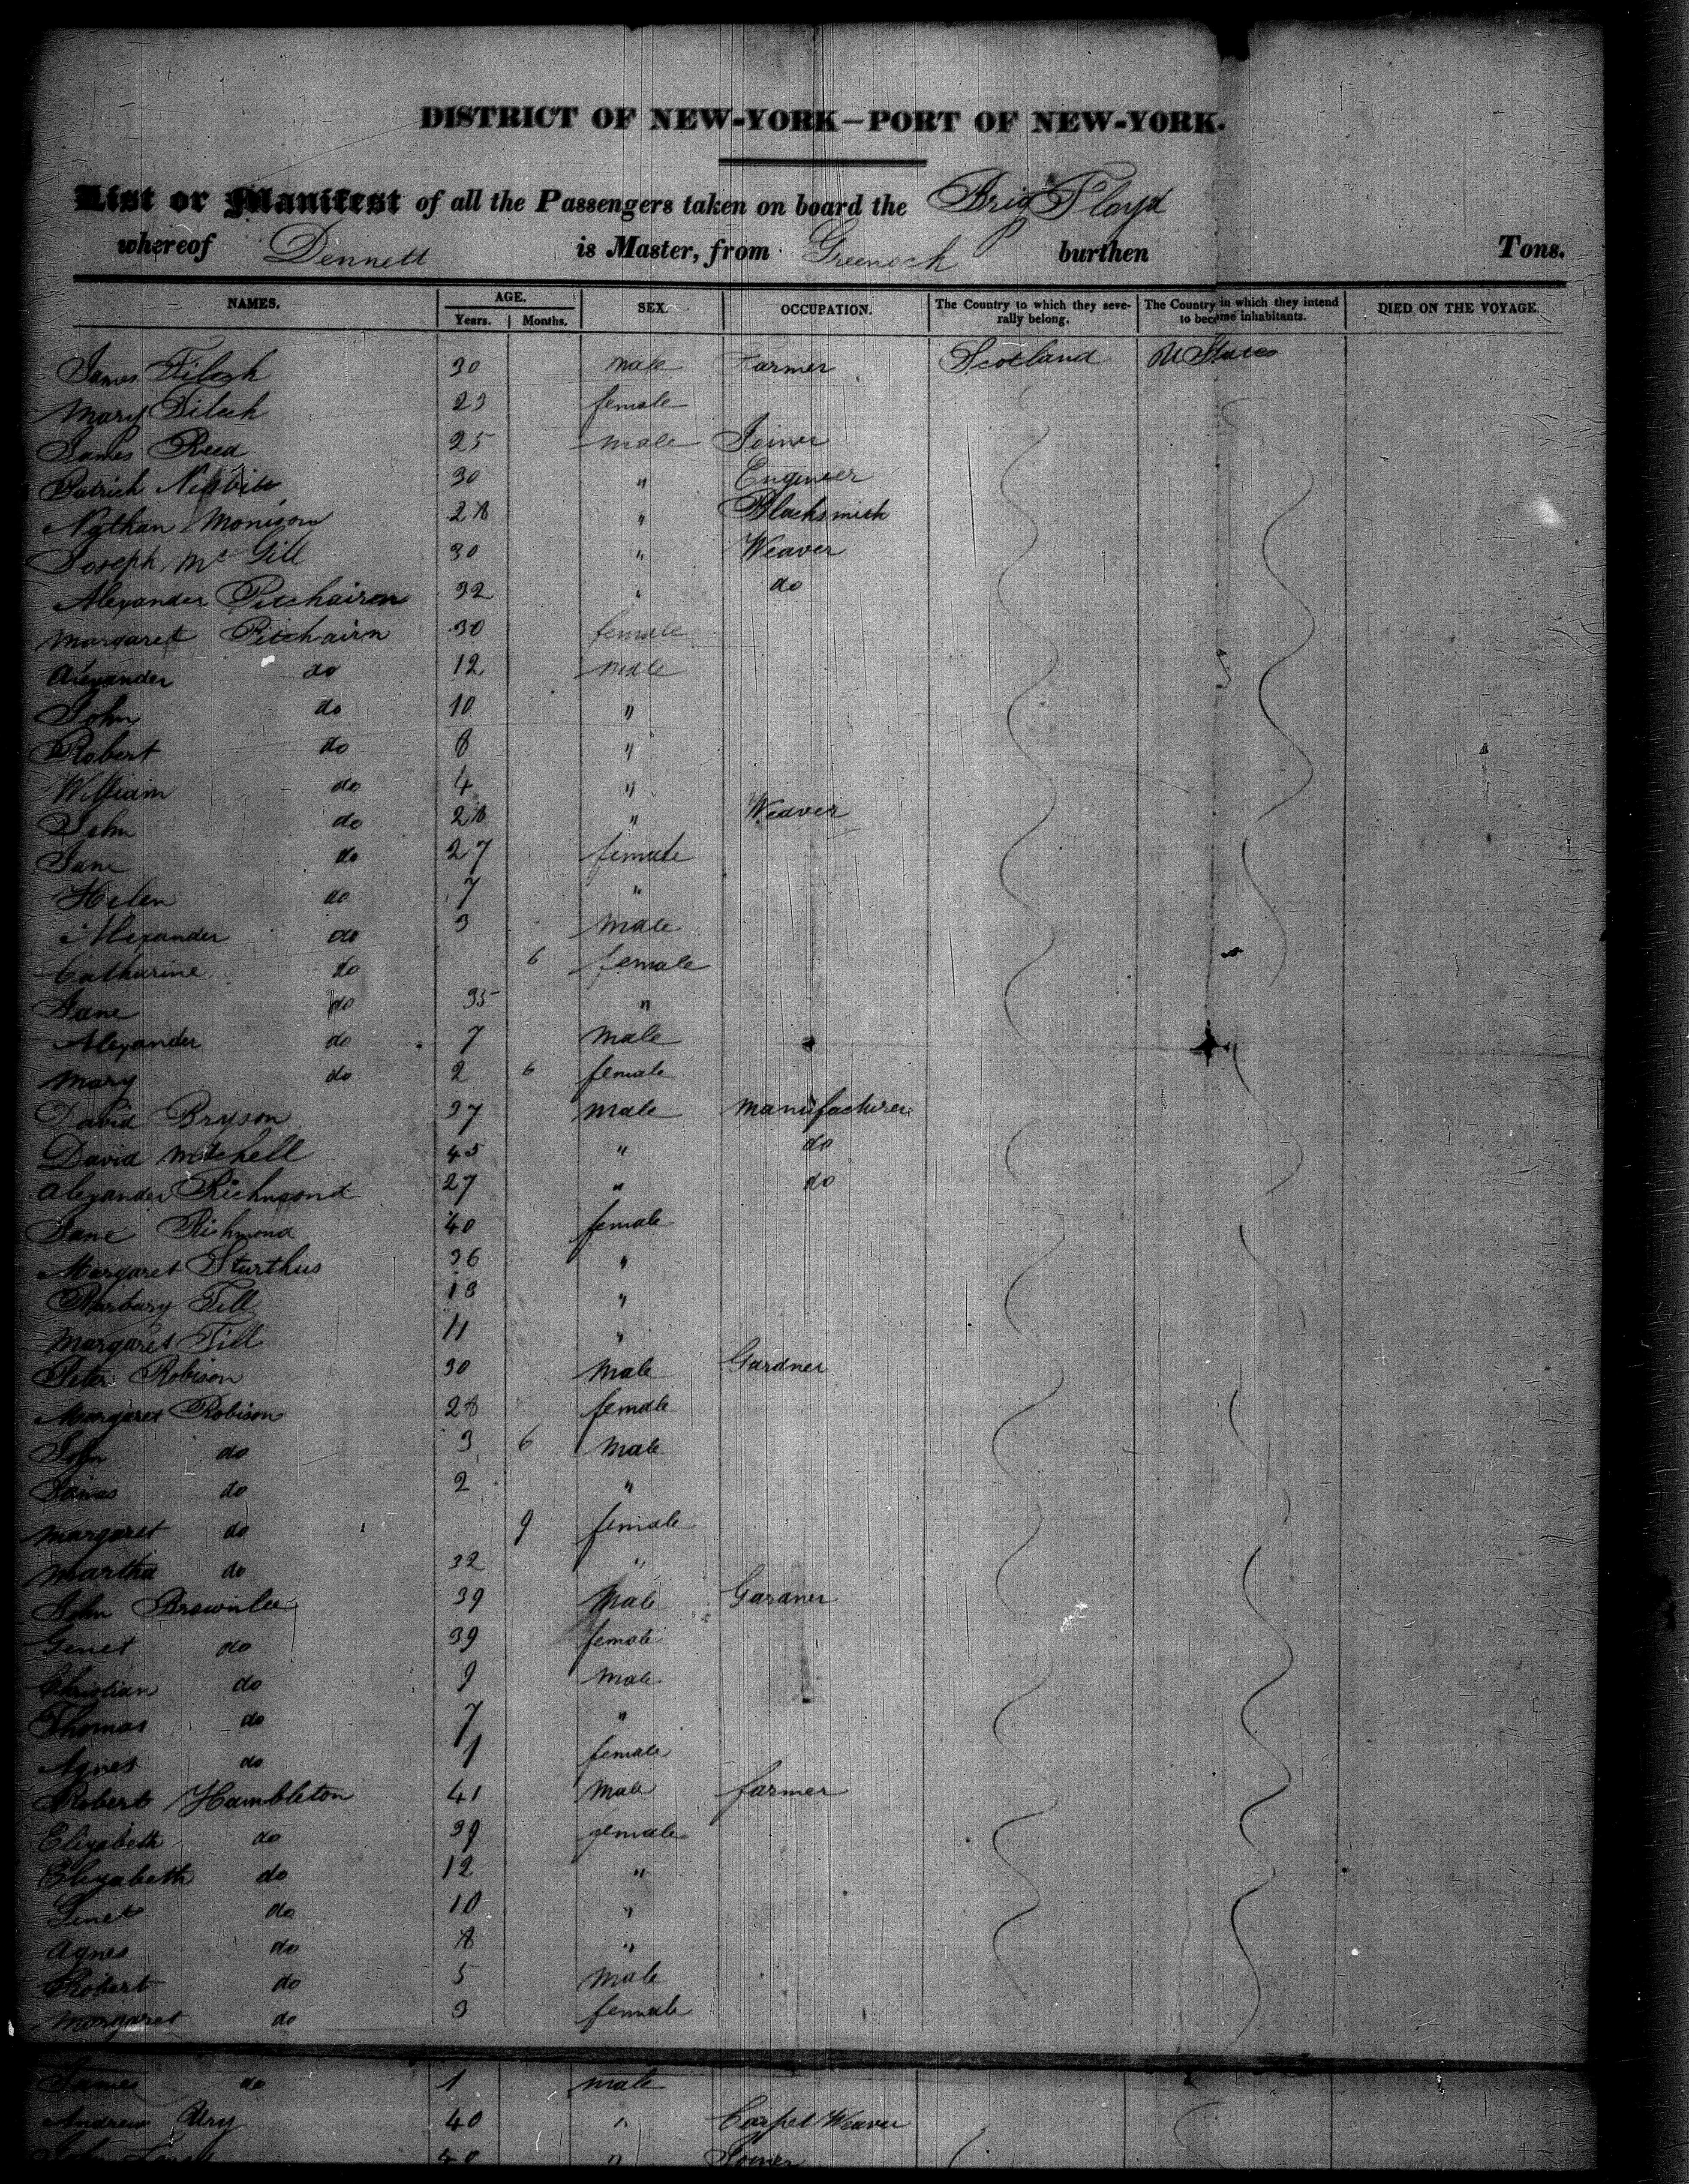 DISTRICT OF NEW-YORK—PORT OF NEW-YORK.
List or Manifest of all the Passengers taken on board the Brig Floyd
whereof Dennett is Master, from Greenock burthen Tons.
NAMES. AGE. Years. Months. SEX. OCCUPATION. The Country to which they severally belong. The Country in which they intend to become inhabitants. DIED ON THE VOYAGE.
James 30 male Farmer Scotland U States
Mary 23 female
James Reed 25 male Joiner
Patrick Nisbitt 30 " Engineer
Nathan Monison 28 " Blacksmith
Joseph McGill 30 " Weaver
Alexander Pitchairn 32 " do
Margaret Pitchairn 30 female
Alexander do 12 male
John do 10 "
Robert do 8 "
William do 4 "
John do 28 " Weaver
Jane do 27 female
Helen do 7 "
Alexander do 3 male
Catharine do 6 female
Jane do 35 "
Alexander do 7 male
Mary do 2 6 female
David Bryson 37 male manufacturer
David Mitchell 45 " do
Alexander Richmond 27 " do
Jane Richmond 40 female
Margaret Sturthus 36 "
Barbary Till 13 "
Margaret Till 11 "
Peter Robison 30 male Gardner
Margaret Robison 28 female
John do 3 6 male
James do 2 "
Margaret do 9 female
Martha do 32 "
John Brownlee 39 male Gardner
Genet do 39 female
Christian do 9 male
Thomas do 7 "
Agnes do 1 female
Robert Hambleton 41 male farmer
Elizabeth do 39 female
Elizabeth do 12 "
Genet do 10 "
Agnes do 8 "
Robert do 5 male
Margaret do 3 female
James do 1 male
Andrew Ury 40 " Carpet Weaver
John 40 " Joiner